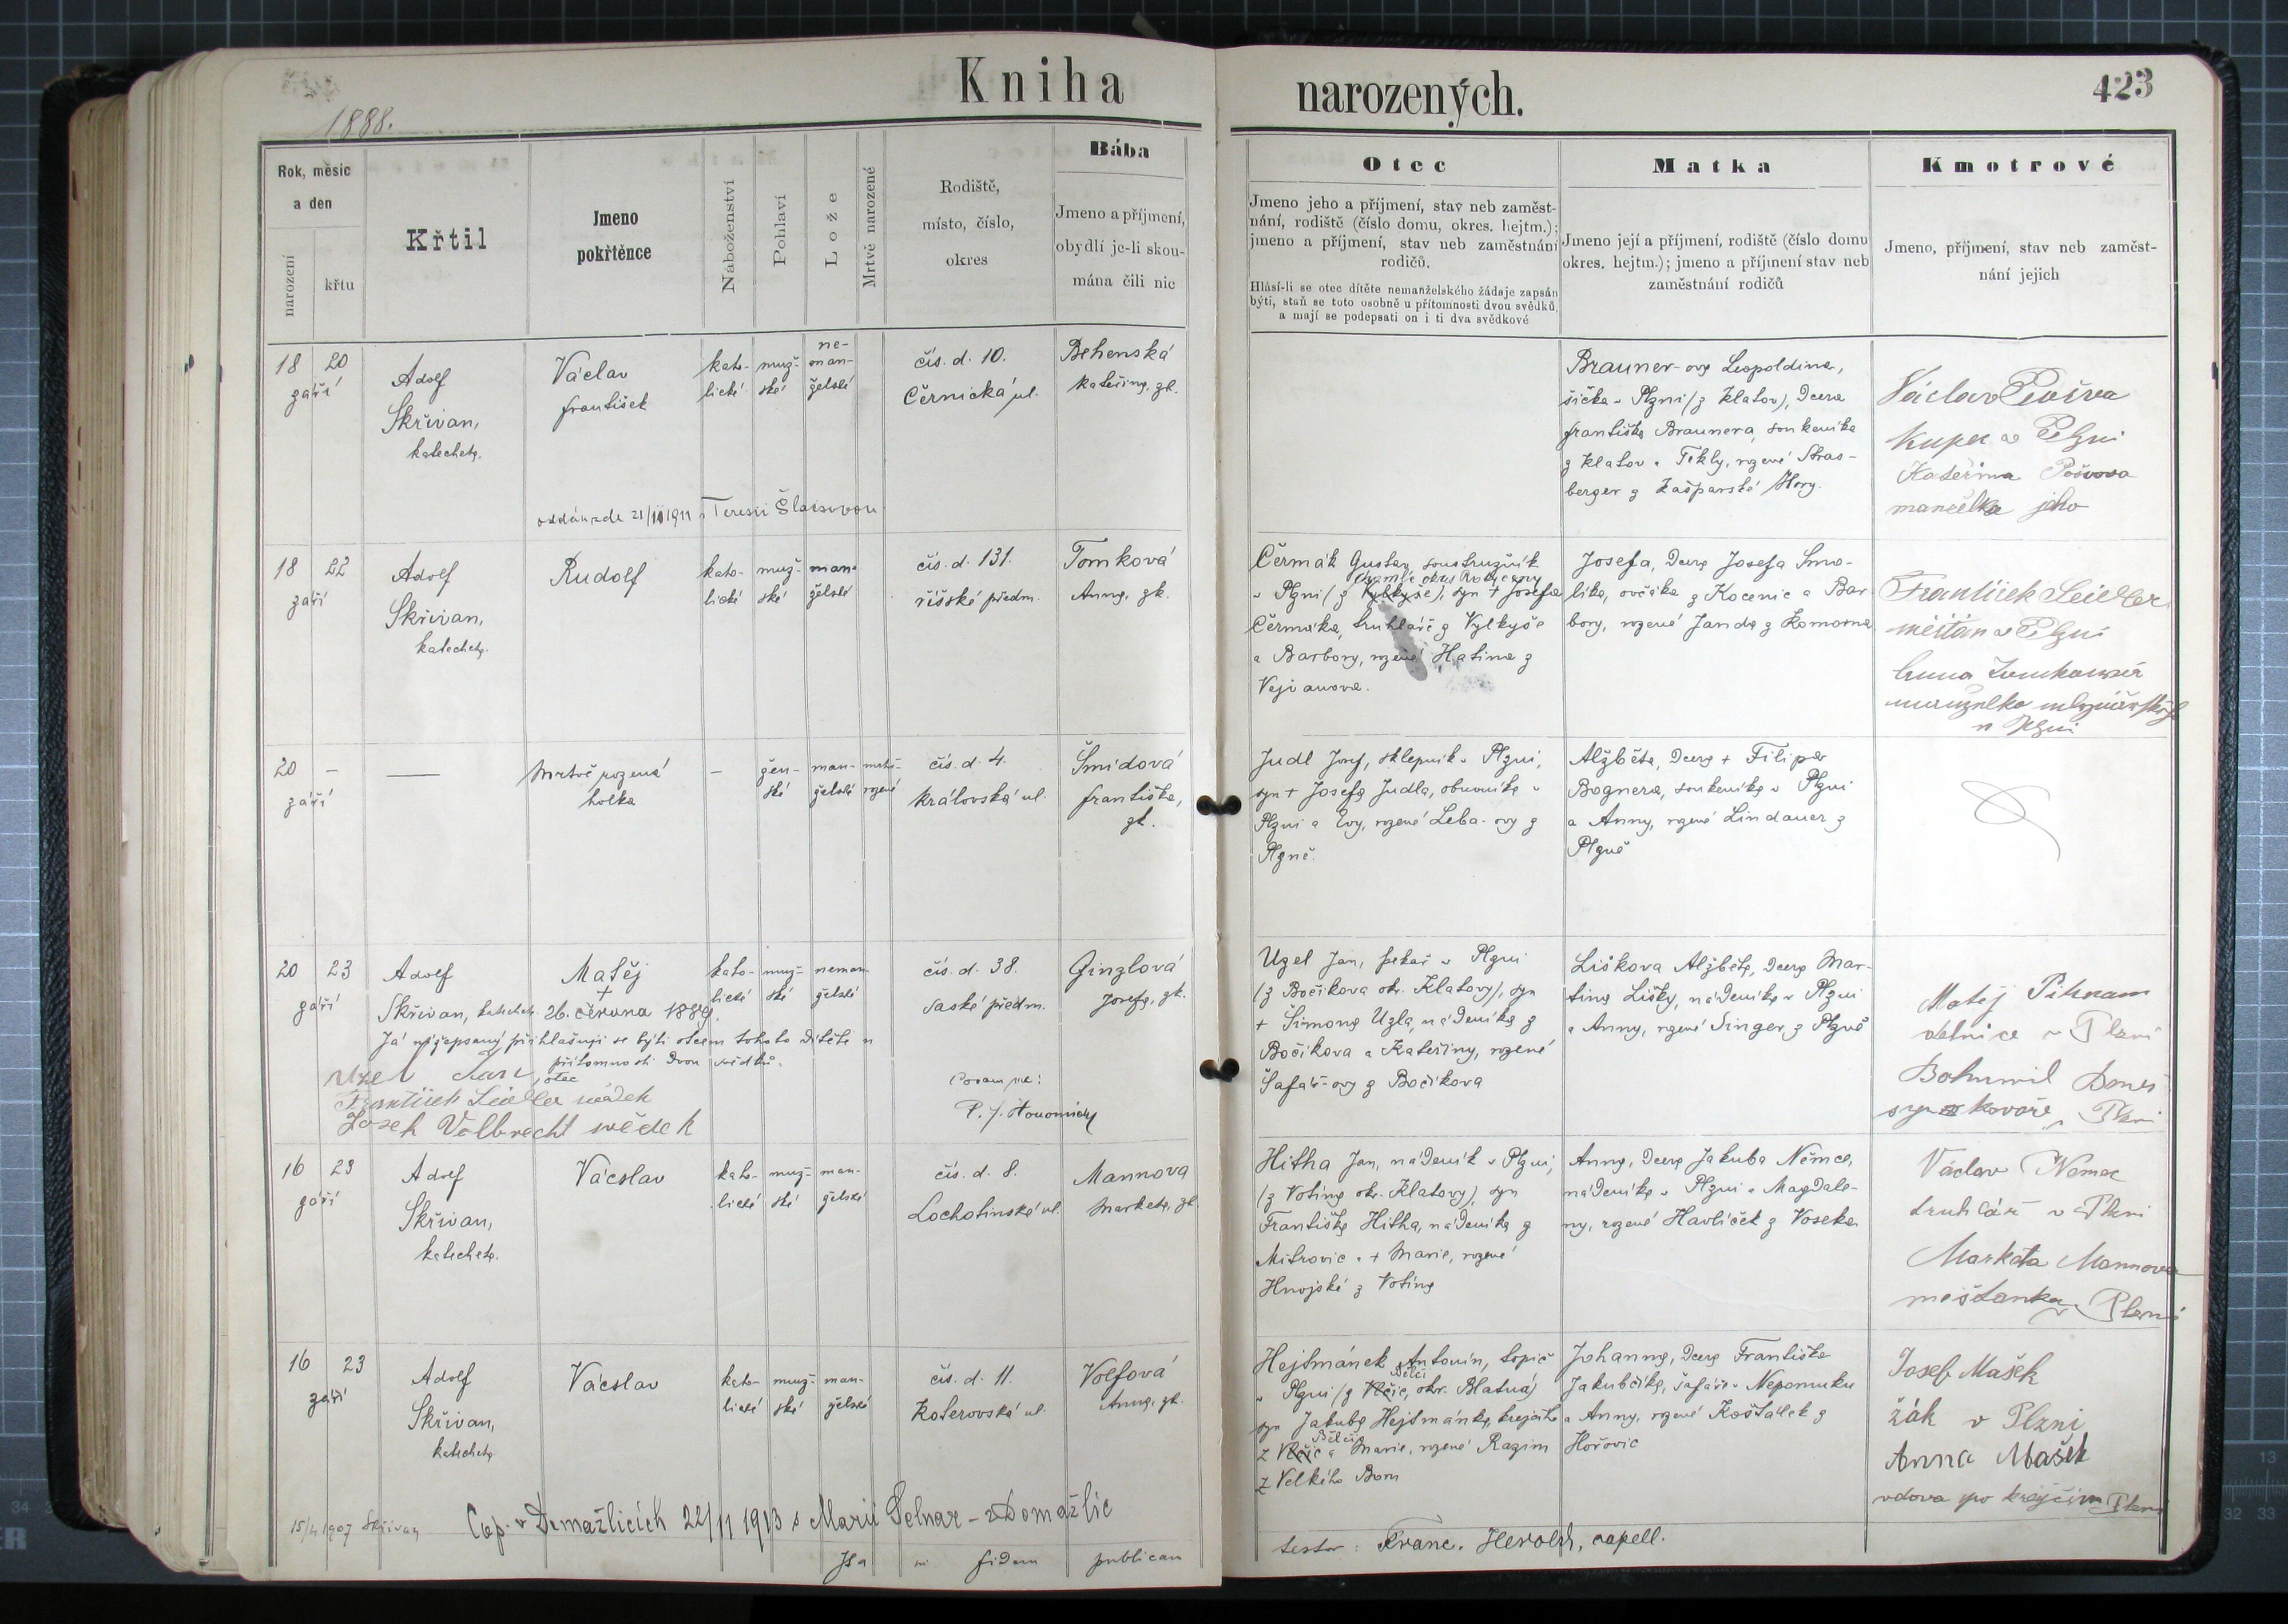 Kniha
narozených.
423
1888.
Rok, měsíc
a den
narození
křtu
Křtil
Jmeno
pokřtěnce
Náboženství
Pohlaví
Lože
Mrtvě narozené
Rodiště,
místo, číslo,
okres
Bába
Jmeno a příjmení,
obydlí je-li skou-
mána čili nic
Otec
Jmeno jeho a příjmení, stav neb zaměst-
nání, rodiště (číslo domu, okres. hejtm.);
jmeno a příjmení, stav neb zaměstnání
rodičů.
Hlásí-li se otec dítěte nemanželského žádaje zapsán
býti, staň se toto osobně u přítomnosti dvou svědků,
a mají se podepsati on i ti dva svědkové
Matka
Jmeno její a příjmení, rodiště (číslo domu
okres. hejtm.); jmeno a příjmení stav neb
zaměstnání rodičů
Kmotrové
Jmeno, příjmení, stav neb zaměst-
nání jejich
18 20
září
Adolf
Skřivan,
katecheta.
Václav
František
kato-
lické
muž-
ské
ne-
man-
želské
čís. d. 10.
Černická ul.
Behenská
Kateřina, zk.
Brauner-ova Leopoldina,
šička v Plzni (z Klatov), dcera
Františka Braunera, soukeníka
z Klatov a Tekly, rozené Stras-
berger z Kašparské Hory.
Václav
Kupec v Plzni
Kateřina
manželka jeho
oddán zde 21/II 1911 s Teresií Šlaisovou.
18 22
září
Adolf
Skřivan,
katecheta.
Rudolf
kato-
lické
muž-
ské
man-
želské
čís. d. 131.
říšské předm.
Tomková
Anna, zk.
Čermák Gustav, soustružník
okres Rokycany
v Plzni (z Vylkyše), syn + Josefa
Čermáka, truhláře z Vylkyše
a Barbory, rozené Hatina z
Vejvanova.
Josefa, dcera Josefa Smo-
líka, ovčáka z Kocenic a Bar-
bory, rozené Janda z Komorna
František Seidler
měšťan v Plzni
Anna
manželka
v Plzni
20 –
září
—
Mrtvě rozená
holka
–
žen-
ské
man-
želské
mrtvě
rozené
čís. d. 4.
Královská ul.
Šmídová
Františka,
zk.
Judl Josef, sklepník v Plzni,
syn + Josefa Judla, obuvníka v
Plzni a Evy, rozené Leba-ovy z
Plzně.
Alžběta, dcera + Filipa
Bognera, soukeníka v Plzni
a Anny, rozené Lindauer z
Plzně
20 23
září
Adolf
Skřivan, katecheta.
Matěj
+
26. června 1889.
kato-
lické
muž-
ské
neman-
želské
čís. d. 38.
Saské předm.
Ginzlová
Josefa, zk.
Uzel Jan, pekař v Plzni
(z Bočíkova okr. Klatovy), syn
+ Šimona Uzla, nádeníka z
Bočíkova a Kateřiny, rozené
Šafář-ovy z Bočíkova
Liškova Alžběta, dcera Mar-
tina Lišky, nádeníka v Plzni
a Anny, rozené Singer z Plzně
Matěj
v Plzni
Bohumil Beneš
syn kováře v Plzni
Já nížepsaný přihlašuji se býti otcem tohoto dítěte u
přítomnosti dvou svědků.
Uzel Jan, otec
František Seidler svědek
Josef Volbrecht svědek
Coram me:
16 23
září
Adolf
Skřivan,
katecheta.
Václav
kato-
lické
muž-
ské
man-
želské
čís. d. 8.
Lochotínská ul.
Mannova
Marketa, zk.
Hitha Jan, nádeník v Plzni,
(z Votína okr. Klatovy), syn
Františka Hitha, nádeníka z
Mitrovic a + Marie, rozené
Hnojské z Votína
Anna, dcera Jakuba Němce,
nádeníka v Plzni a Magdale-
ny, rozené Havlíček z Voseka
Václav Nemec
truhlář v Plzni
Markéta Mannova
měšťanka v Plzni
16 23
září
Adolf
Skřivan,
katecheta
Václav
kato-
lické
muž-
ské
man-
želské
čís. d. 11.
Koterovská ul.
Volfová
Anna, zk.
Hejtmánek Antonín, topič
Bělčí
v Plzni (z Vlčic, okr. Blatná)
syn Jakuba Hejtmánka, krejčího
Bělčí
z Vlčic a Marie, rozené Razim
z Velkého Boru
Johanna, dcera Františka
Jakubčíka, šafáře v Nepomuku
a Anny, rozené Košťálek z
Hořovic
Josef Mašek
žák v Plzni
Anna Mašek
vdova po krejčím v Plzni
15/4 1907 Skřivan
Cop. v Domažlicích 22/11 1913 s Marií Pelnar – z Domažlic
Ita in fidem publicam
testor: Franc. Herold, capell.